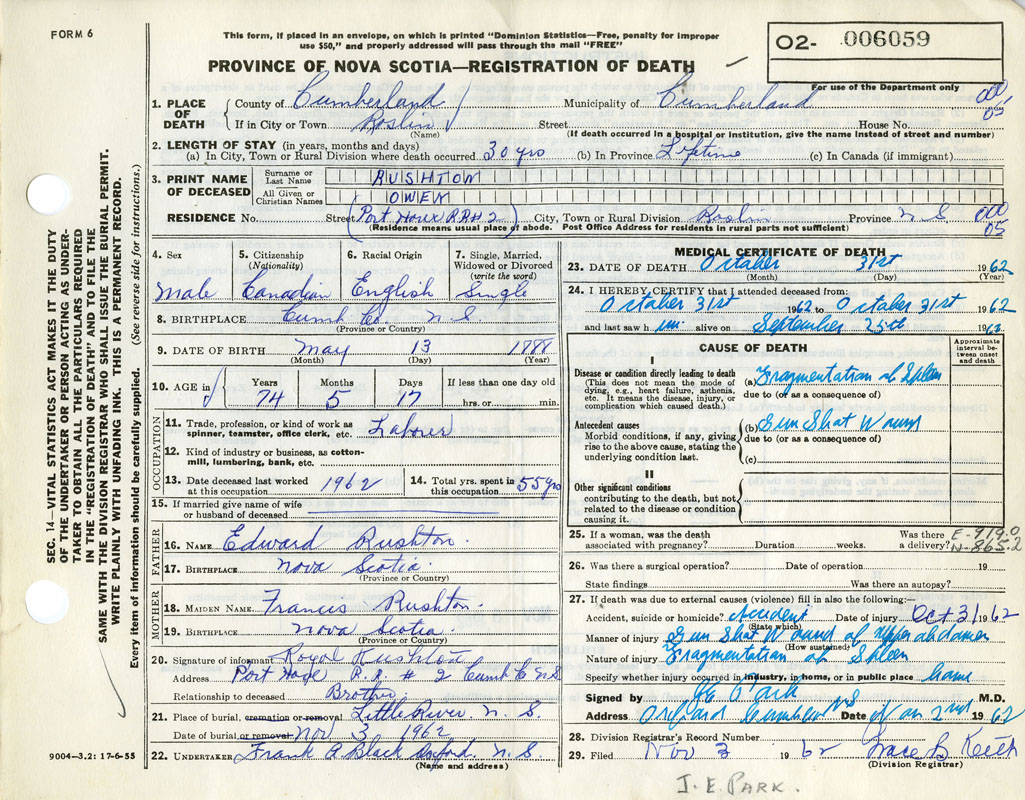 FORM 6
This form, if placed in an envelope, on which is printed "Dominion Statistics—Free, penalty for improper
use $50," and properly addressed will pass through the mail "FREE"
O2- 006059
PROVINCE OF NOVA SCOTIA—REGISTRATION OF DEATH
For use of the Department only
1. PLACE OF DEATH County of Cumberland Municipality of Cumberland 000
If in City or Town Roslin Street House No. 05
(Name) (If death occurred in a hospital or institution, give the name instead of street and number)
2. LENGTH OF STAY (in years, months and days)
(a) In City, Town or Rural Division where death occurred 30 yrs (b) In Province Lifetime (c) In Canada (if immigrant)
3. PRINT NAME OF DECEASED Surname or Last Name RUSHTON
All Given or Christian Names OWEN
RESIDENCE No. Street Port Howe RR#2 City, Town or Rural Division Roslin Province N.S 000
(Residence means usual place of abode. Post Office Address for residents in rural parts not sufficient) 05
4. Sex Male
5. Citizenship (Nationality) Canadian
6. Racial Origin English
7. Single, Married, Widowed or Divorced (write the word) Single
8. BIRTHPLACE Cumb Co. N.S.
(Province or Country)
9. DATE OF BIRTH May 13 1888
(Month) (Day) (Year)
10. AGE in Years 74 Months 5 Days 17 If less than one day old hrs. or min.
OCCUPATION
11. Trade, profession, or kind of work as
spinner, teamster, office clerk, etc. Laborer
12. Kind of industry or business, as cotton-
mill, lumbering, bank, etc.
13. Date deceased last worked at this occupation 1962
14. Total yrs. spent in this occupation 55 yrs
15. If married give name of wife
or husband of deceased
FATHER
16. NAME Edward Rushton.
17. BIRTHPLACE Nova Scotia
(Province or Country)
MOTHER
18. MAIDEN NAME Francis Rushton.
19. BIRTHPLACE Nova Scotia
(Province or Country)
20. Signature of informant Royal Rushton
Address Port Howe R.R. # 2 Cumb C NS
Relationship to deceased Brother.
21. Place of burial, cremation or removal Little River N. S.
Date of burial, or removal Nov 3 1962
22. UNDERTAKER Frank A Black Oxford, N. S
(Name and address)
MEDICAL CERTIFICATE OF DEATH
23. DATE OF DEATH October 31st 1962
(Month) (Day) (Year)
24. I HEREBY CERTIFY that I attended deceased from:
October 31st 1962 to October 31st 1962
and last saw h im alive on September 25th 1962
CAUSE OF DEATH
Approximate interval between onset and death
I
Disease or condition directly leading to death
(This does not mean the mode of
dying, e.g., heart failure, asthenia,
etc. It means the disease, injury, or
complication which caused death.)
(a) Fragmentation of Spleen
due to (or as a consequence of)
Antecedent causes
Morbid conditions, if any, giving
rise to the above cause, stating the
underlying condition last.
(b) Gun Shot Wound
due to (or as a consequence of)
(c)
II
Other significant conditions
contributing to the death, but not
related to the disease or condition
causing it.
25. If a woman, was the death Was there E-919.0
associated with pregnancy? Duration weeks. a delivery? N-865.2
26. Was there a surgical operation? Date of operation 19
State findings Was there an autopsy?
27. If death was due to external causes (violence) fill in also the following:—
Accident, suicide or homicide? Accident Date of injury Oct 31 1962
(State which)
Manner of injury Gun Shot Wound of upper abdomen
(How sustained)
Nature of injury Fragmentation of Spleen
Specify whether injury occurred in industry, in home, or in public place home
Signed by J E Park M.D.
Address Oxford Cumber NS Date Nov 2nd 1962
28. Division Registrar's Record Number
29. Filed Nov 3 1962 Grace B Keith
(Division Registrar)
J. E. PARK.
SEC. 14—VITAL STATISTICS ACT MAKES IT THE DUTY
OF THE UNDERTAKER OR PERSON ACTING AS UNDER-
TAKER TO OBTAIN ALL THE PARTICULARS REQUIRED
IN THE "REGISTRATION OF DEATH" AND TO FILE THE
SAME WITH THE DIVISION REGISTRAR WHO SHALL ISSUE THE BURIAL PERMIT.
WRITE PLAINLY WITH UNFADING INK. THIS IS A PERMANENT RECORD.
Every item of information should be carefully supplied. (See reverse side for instructions.)
9004—3.2: 17-6-55